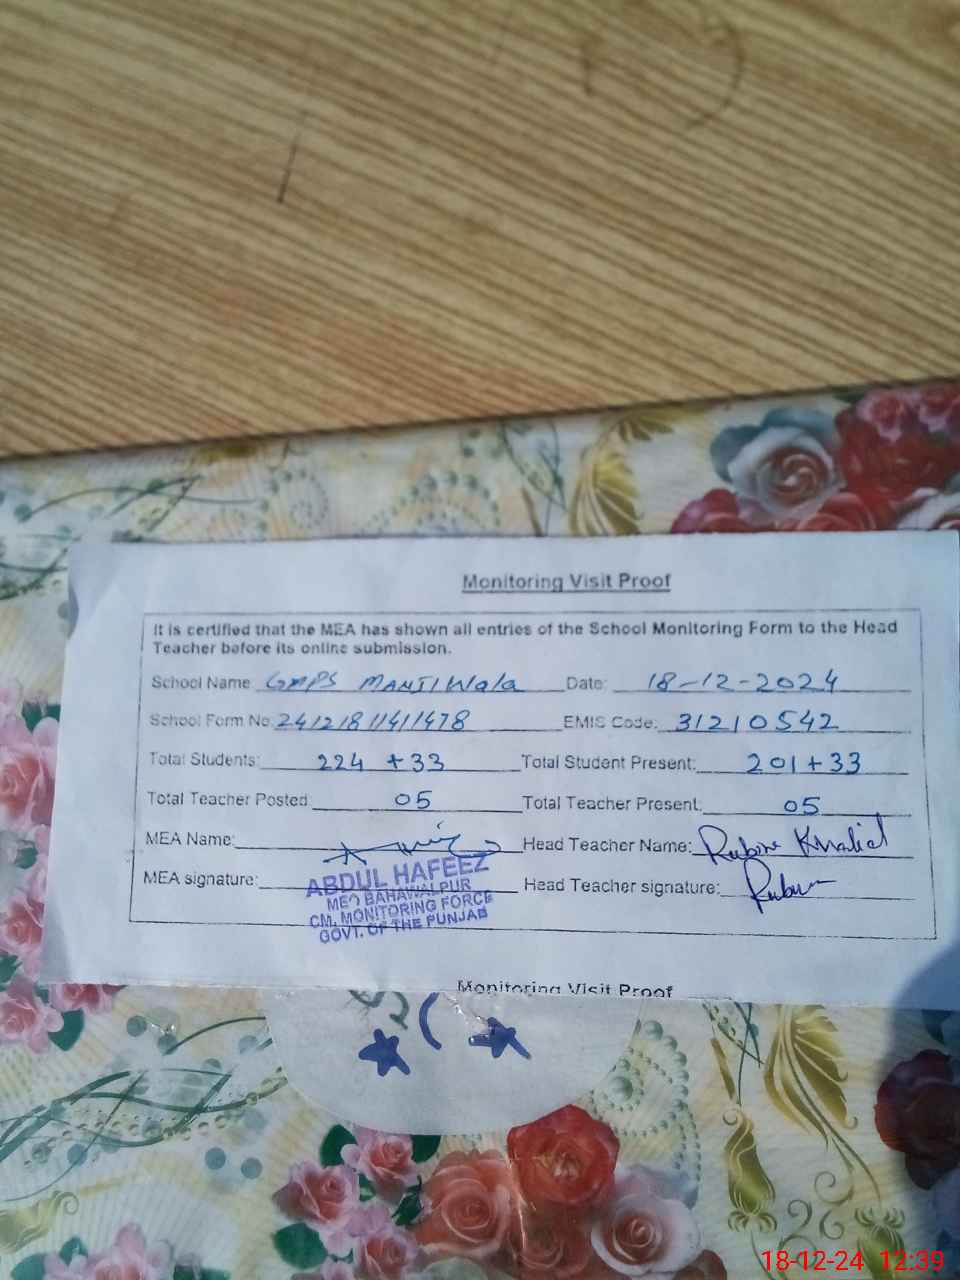 Monitoring Visit Proof
It is certified that the MEA has shown all entries of the School Monitoring Form to the Head
Teacher before its online submission.
School Name GMPS MANJIWala Date: 18-12-2024
School Form No: 24121811411478 EMIS Code: 31210542
Total Students: 224 +33 Total Student Present: 201+33
Total Teacher Posted 05 Total Teacher Present: 05
MEA Name: Head Teacher Name: Khalid
MEA signature: Head Teacher signature:
ABDUL HAFEEZ
MEO BAHAWALPUR
CM. MONITORING FORCE
GOVT. OF THE PUNJAB
Monitoring Visit Proof
18-12-24 12:39